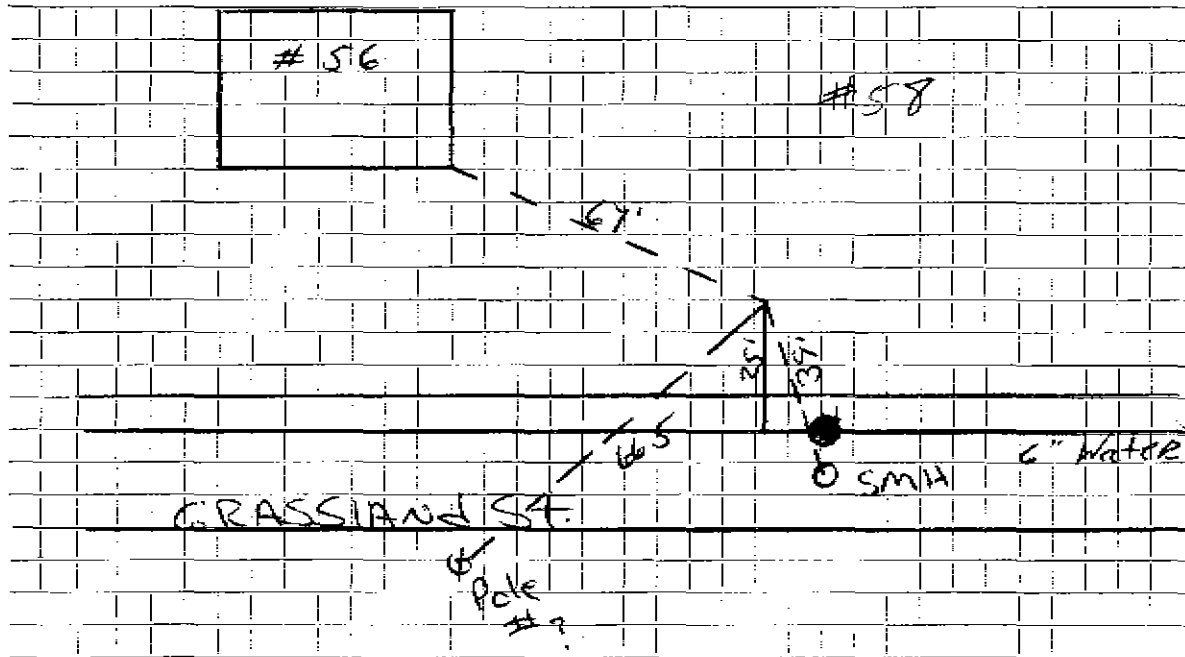 # 56
#58
67'
25'
39'
66.5
6" Water
SMH
GRASSLANd St.
Pole
# ?